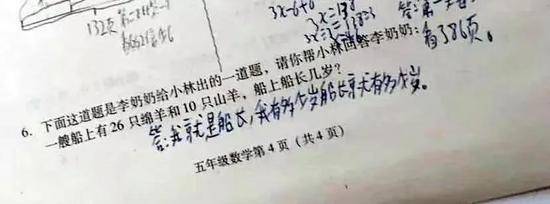 132页
3x-6+6
3x=138
有386页。
6. 下面这道题是李奶奶给小林出的一道题，请你帮小林回答李奶奶：
一艘船上有26只绵羊和10只山羊，船上船长几岁？
答：我就是船长，我有多少岁船长就有多少岁。
五年级数学第4页（共4页）